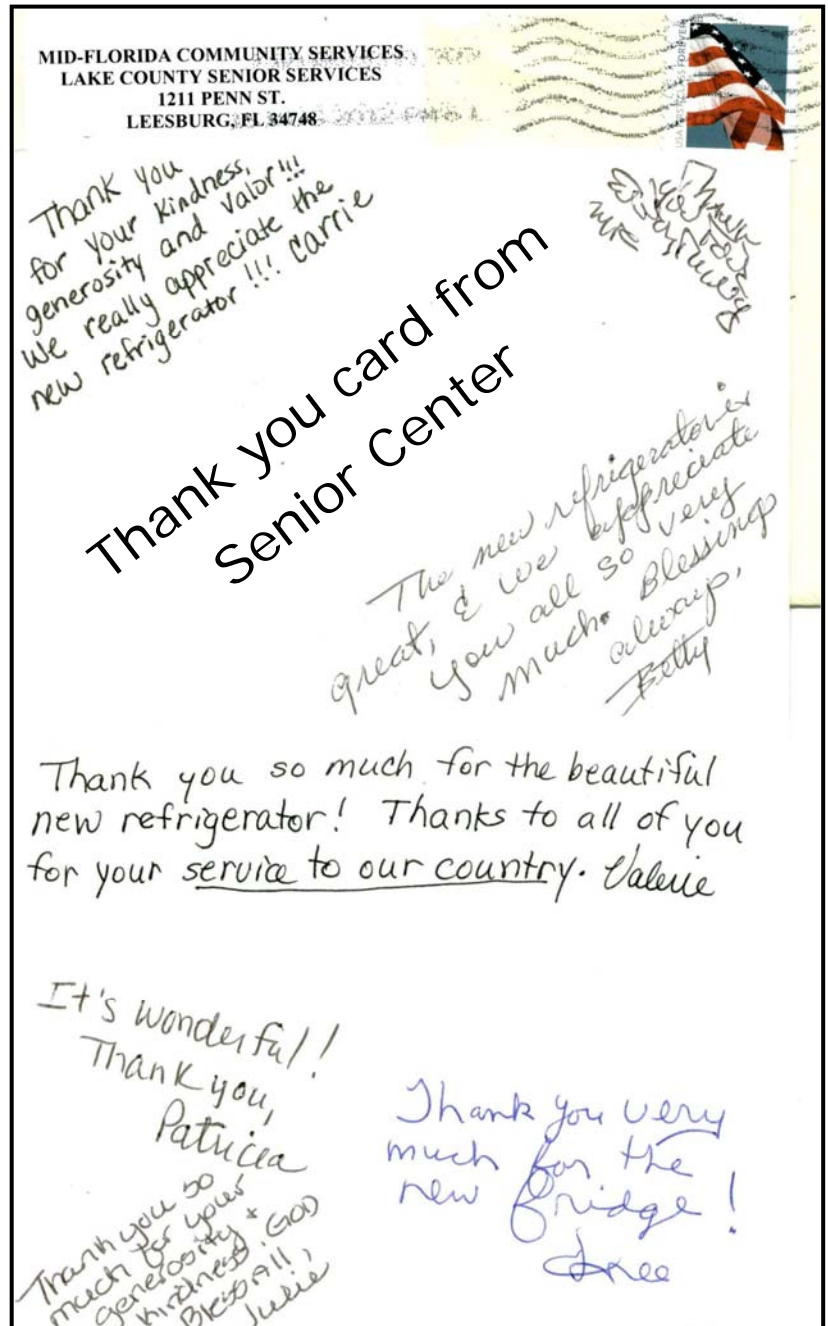 MID-FLORIDA COMMUNITY SERVICES
LAKE COUNTY SENIOR SERVICES
1211 PENN ST.
LEESBURG, FL 34748
USA FIRST-CLASS FOREVER
Thank you
for your kindness,
generosity and valor!!!
We really appreciate the
new refrigerator!!! Carrie
Thank
You for
Thank you card from
Senior Center
The new refrigerator is
great, & we appreciate
you all so very
much. Blessings
always,
Betty
Thank you so much for the beautiful
new refrigerator! Thanks to all of you
for your service to our country. Valerie
It's wonderful!
Thank you,
Patricia
Thank you so
much for your
generosity +
kindness. GOD
Bless All,
Julie
Thank you very
much for the
new fridge!